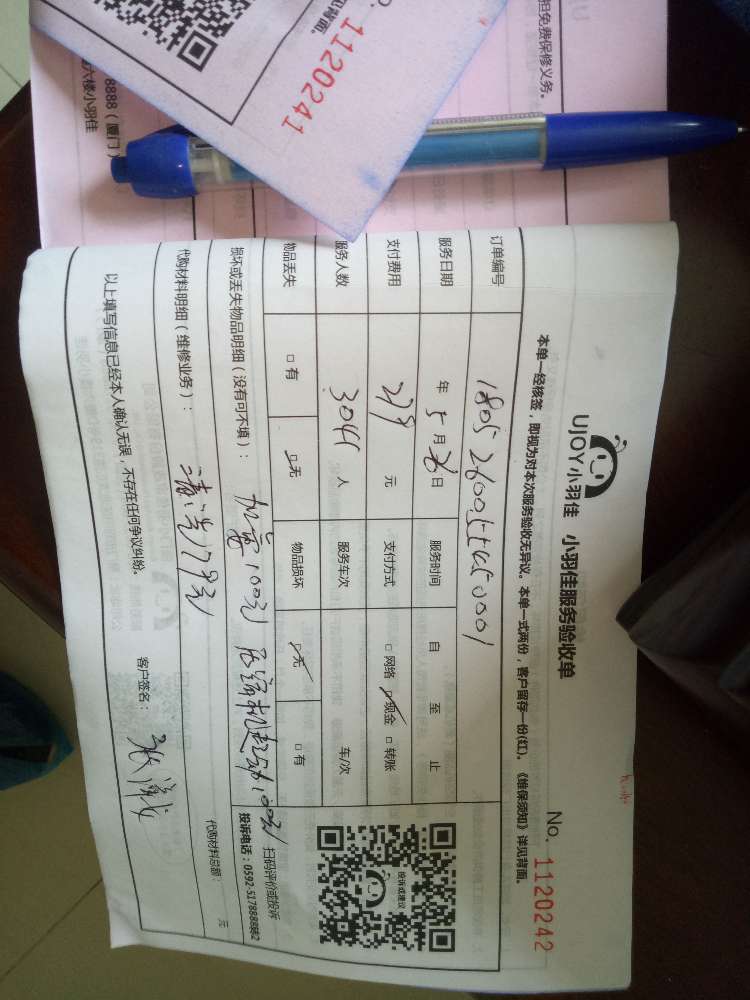 1120241
担免费保修义务。
8888（厦门）
六楼小羽佳
UJOY小羽佳 小羽佳服务验收单
No. 1120242
本单一经核签，即视为对本次服务验收无异议。本单一式两份，客户留存一份(红)。《维保须知》详见背面。
订单编号
服务日期 年 5 月 26 日 服务时间 自 至 止
支付费用 279 元 支付方式 □网络 □现金 □转账
服务人数 3041 人 服务车次 车/次
物品丢失 □有 □无 物品损坏 □无 □有
损坏或丢失物品明细（没有可不填）：
加雪100元 压缩机起动100元
代购材料明细（维修业务）：
清洗79元
代购材料总额： 元
投诉或建议
扫码评价或投诉
投诉电话：0592-5178888882
以上填写信息已经本人确认无误，不存在任何争议纠纷。
客户签名：